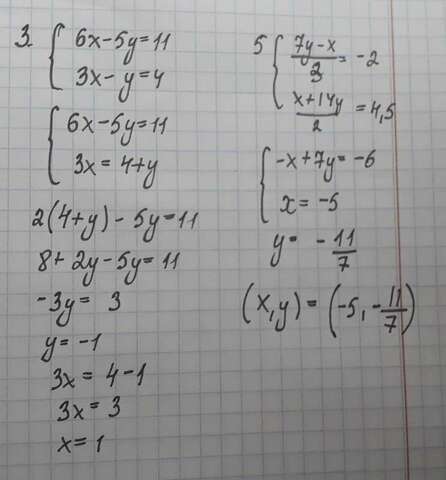 3. 6x-5y=11
3x-y=4
6x-5y=11
3x=4+y
2(4+y)-5y=11
8+2y-5y=11
-3y= 3
y=-1
3x= 4-1
3x=3
x=1
5 (7y-x)/3 = -2
(x+14y)/2 = 4,5
-x+7y=-6
x=-5
y= -11/7
(x,y)=(-5,-11/7)